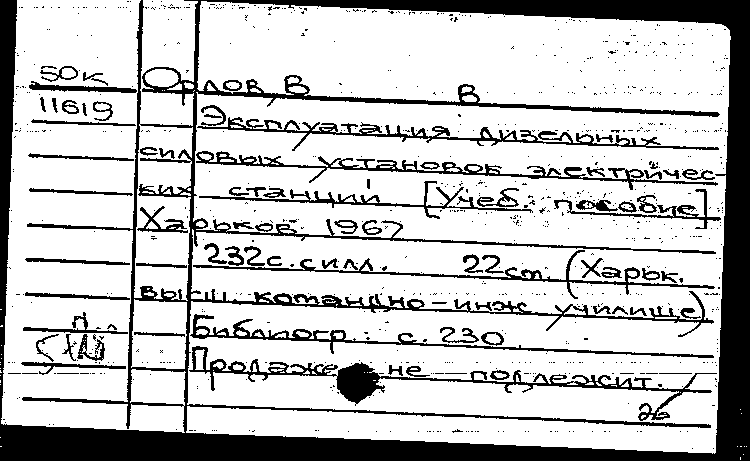 50к Орлов, В В
11619 Эксплуатация дизельных
силовых установок электричес-
ких станций [Учеб. пособие]
Харьков, 1967
232с. с илл. 22 cm. (Харьк.
высш. командно-инж училище)
Библиогр.: с. 230
Продаже не подлежит.
26